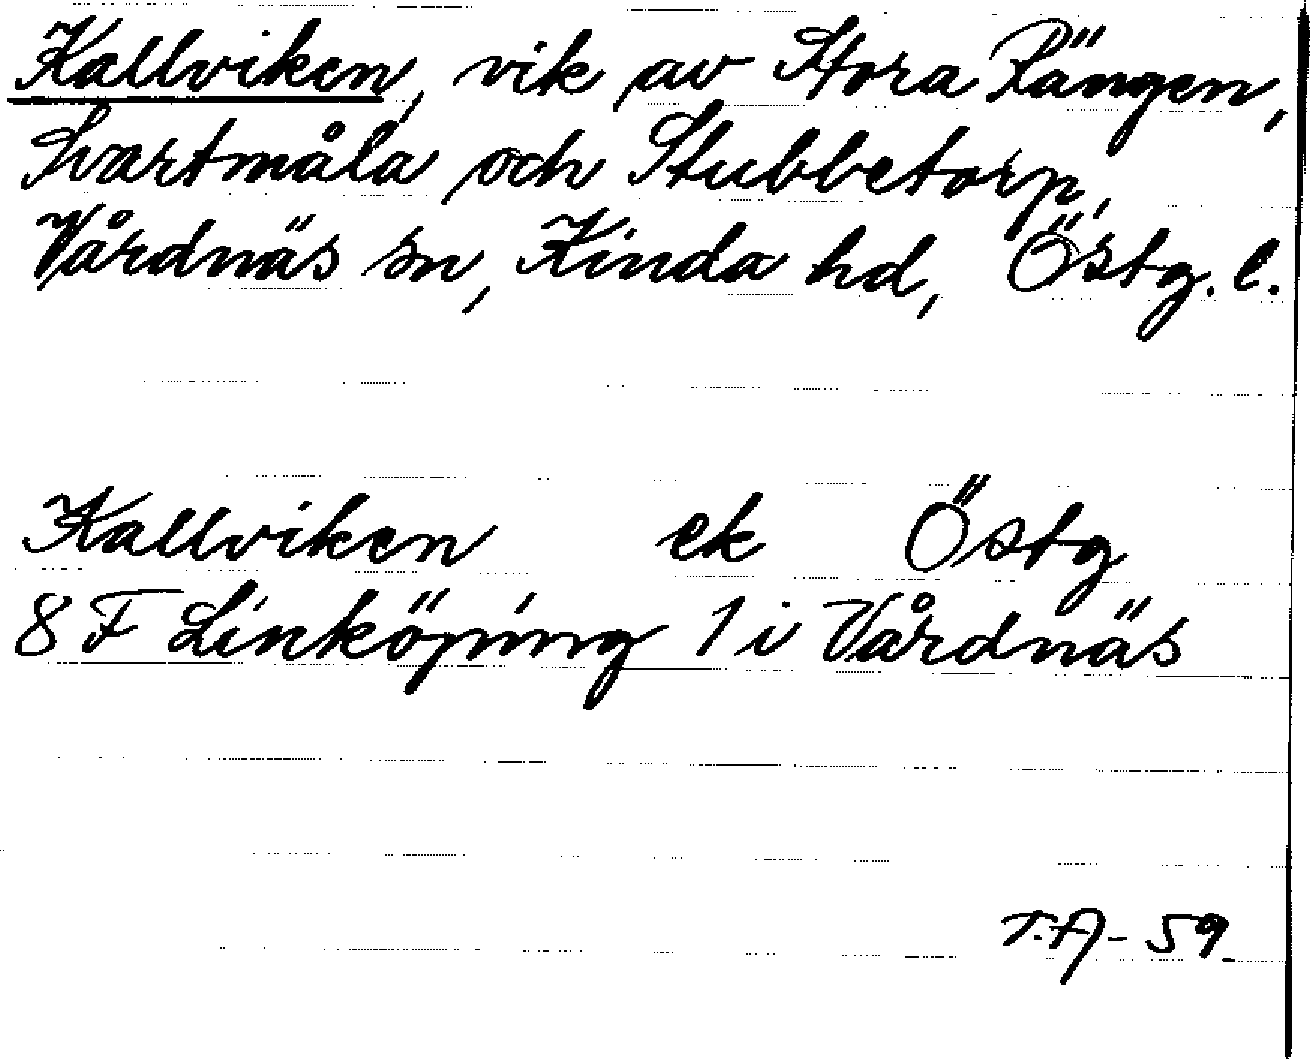 Kallviken, vik av Stora Rängen,
Svartmåla och Stubbetorp,
Vårdnäs sn, Kinda hd, Östg. l.
Kallviken ek Östg
8 F Linköping 1 i Vårdnäs
T.A - 59